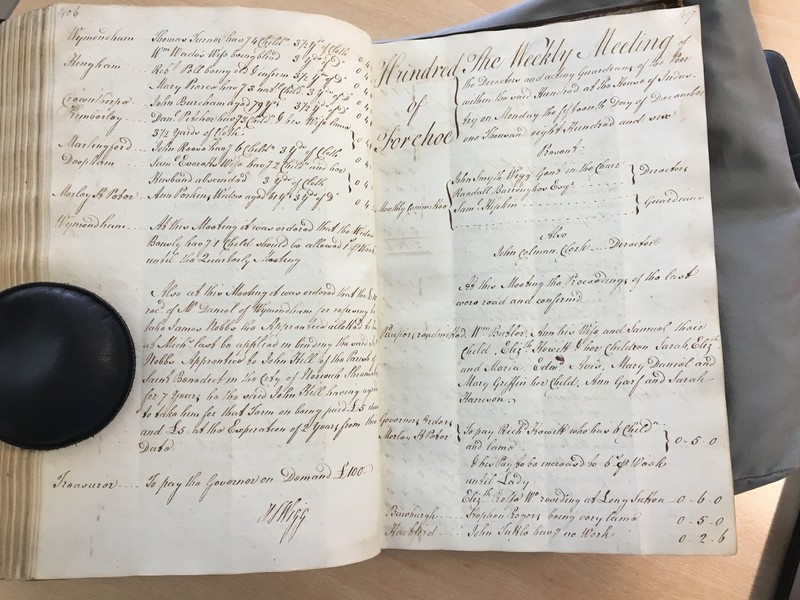 406
Wymondham Thomas Turner hav.g 4 Child.n 3½ y.ds of Cloth 0 4
W.m Wade's Wife being blind 3 y.ds of d.o 0 4
Hingham Rob.t Poll being old & infirm 3½ y.ds of d.o 0 4
Mary Pierce hav.g 3 Child.n 3 y.ds of d.o 0 4
Crownthorpe John Burcham 79 y.rs 3½ y.ds of d.o 0 4
Kimberley Dan.l Pitcher hav.g 3 Child.n & his Wife lame
3½ Yards of Cloth 0 4
Marlingford John Rowe hav.g 6 Child.n 3 y.ds of Cloth 0 4
Deopham Sam.l Wife hav.g 2 Child.n and her
Husband absconded 3 y.ds of Cloth 0 4
Morley S.t Peter Ann Parker Widow aged 61 y.rs 3 y.ds of d.o 0 4
Wymondham At this Meeting it was ordered that the Widow
hav.g 1 Child should be allowed 1.s p.r Week
until the Quarterly Meeting
Also at this Meeting it was ordered that the £10
rec.d of M.r Daniel of Wymondham for refusing to
take James Nobbs his Apprentice allotted to him
at Mich.s last be applied in binding the said Ja.s
Nobbs Apprentice to John Hill of the Parish of
Saint Benedict in the City of Norwich
for 7 Years he the said John Hill having agreed
to take him for that Term on being paid £5 down
and £5 at the Expiration of 2 Years from this
Date
Treasurer To pay the Governor on Demand £100.
JS Wigg
407
Hundred of Forehoe
The Weekly Meeting of
the Directors and acting Guardians of the Poor
within the said Hundred at the House of Indus-
try on Monday the fifteenth Day of December
one Thousand eight Hundred and six
Present
Monthly Committee
John Smyth Wigg Gent in the Chair
Randall Burroughes Esq.r
Directors
Sam.l Hipkin
Guardians
Also
John Colman Clerk Director
At this Meeting the Proceedings of the last
were read and confirmed
Paupers readmitted W.m Butler, Ann his Wife and Samuel their
Child, Eliz.th Howitt & her Children Sarah, Eliz.th
and Maria, Edm.d Avis, Mary Daniel and
Mary Griffin her Child, Ann Garf and Sarah
Harrison
Governor Orders
Morley S.t Peter To pay Rich.d Howitt who has 6 Child.n
and lame 0 - 5 - 0
& his Pay to be increased to 6.s p.r Week
until Lady
Eliz.th Rolfe W.o residing at Long Sutton 0 - 6 - 0
Bawburgh Stephen Rogers being very lame 0 - 5 - 0
Hackford John Tuttle hav.g no Work 0 - 2 - 6